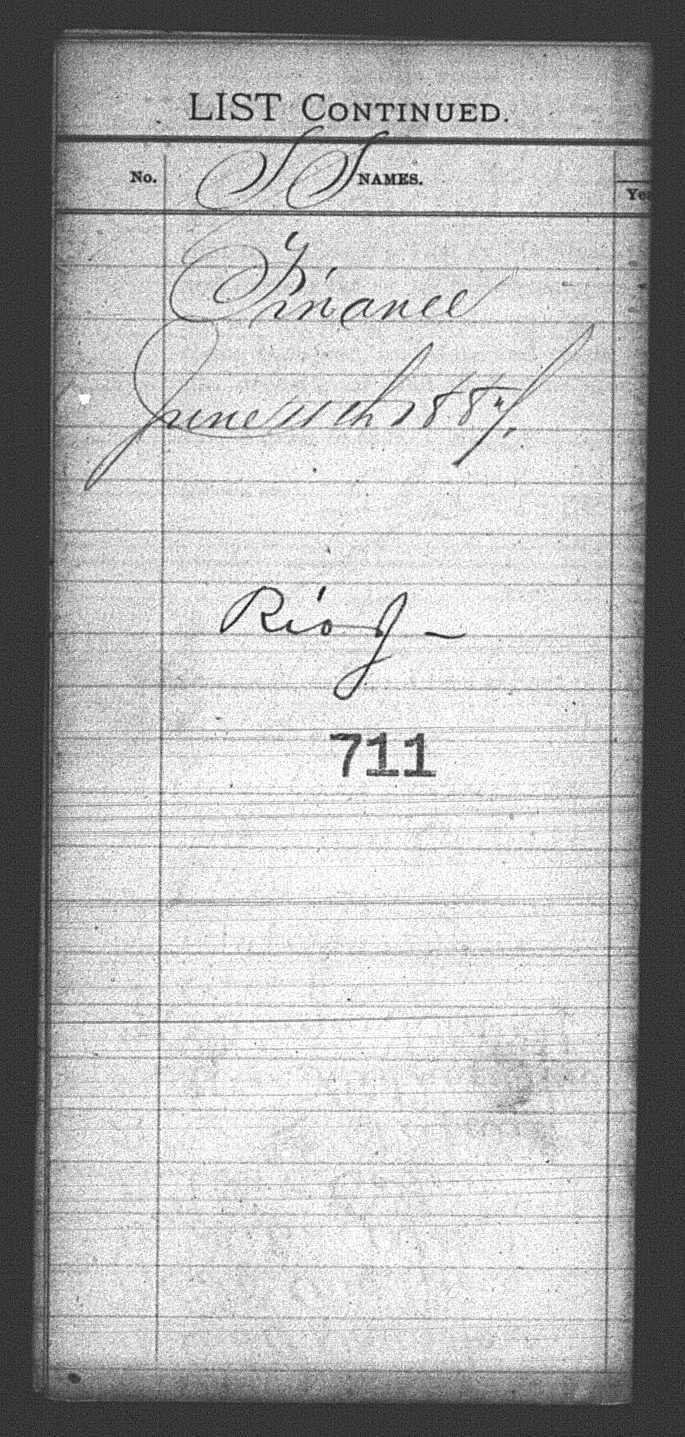 LIST CONTINUED.
No. NAMES. Yea
SS
Finance
June 11th 1887.
Rio J —
711